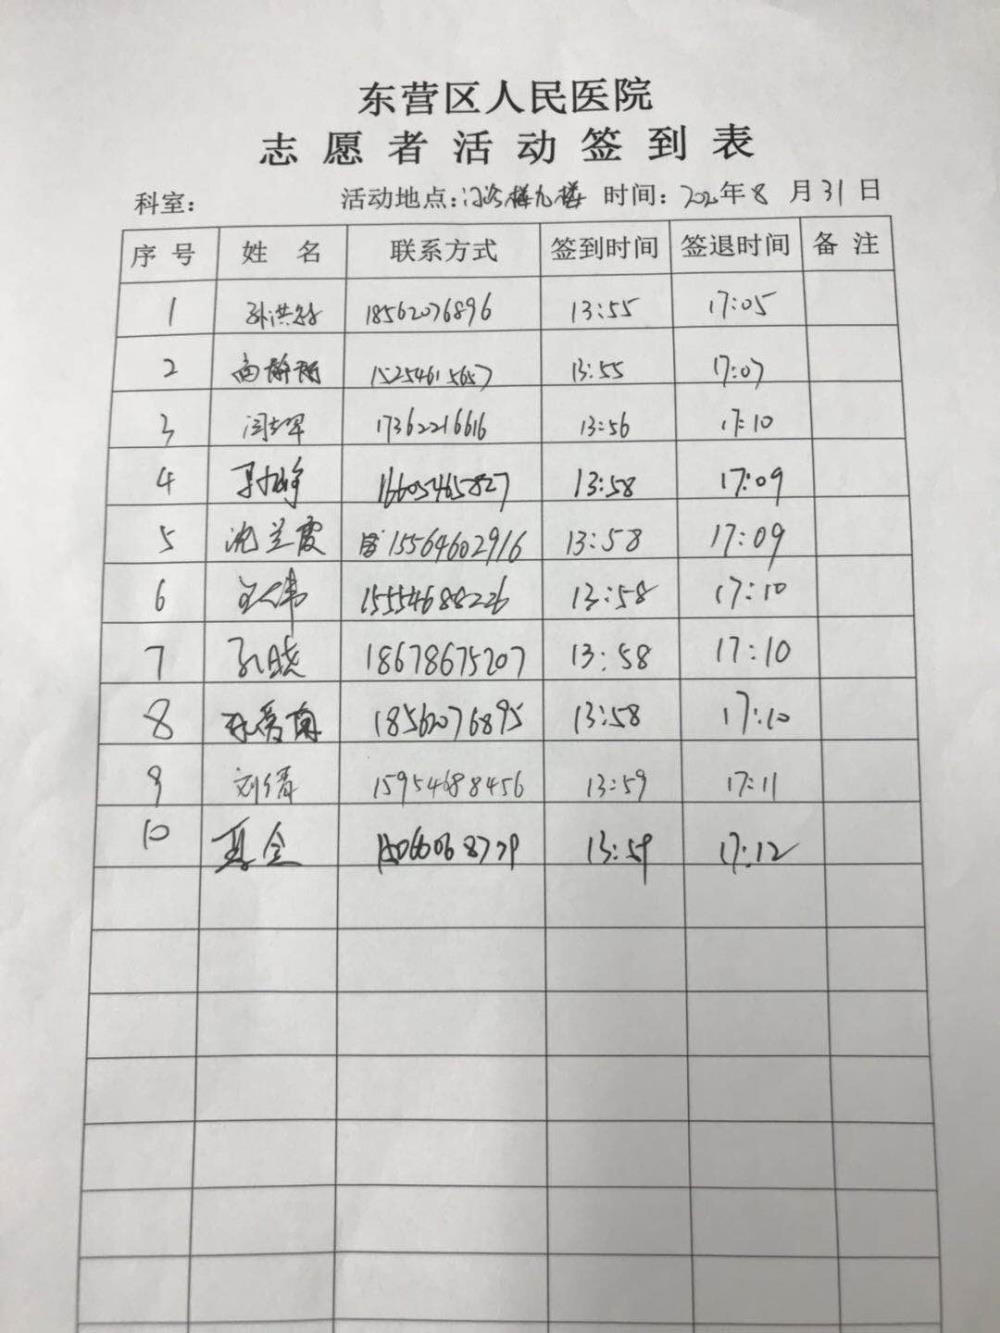 东营区人民医院
志愿者活动签到表
科室： 活动地点：门诊楼九楼 时间：2020年8月31日
序号 姓名 联系方式 签到时间 签退时间 备注
1 孙洪 18562076896 13:55 17:05
2 高静 15254615657 13:55 17:07
3 闫 17362216616 13:56 17:10
4 16605465827 13:58 17:09
5 沈兰霞 15564602916 13:58 17:09
6 伟 15554688226 13:58 17:10
7 孔晓 18678675207 13:58 17:10
8 爱 18562076895 13:58 17:10
9 刘倩 15954688456 13:59 17:11
10 13:59 17:12